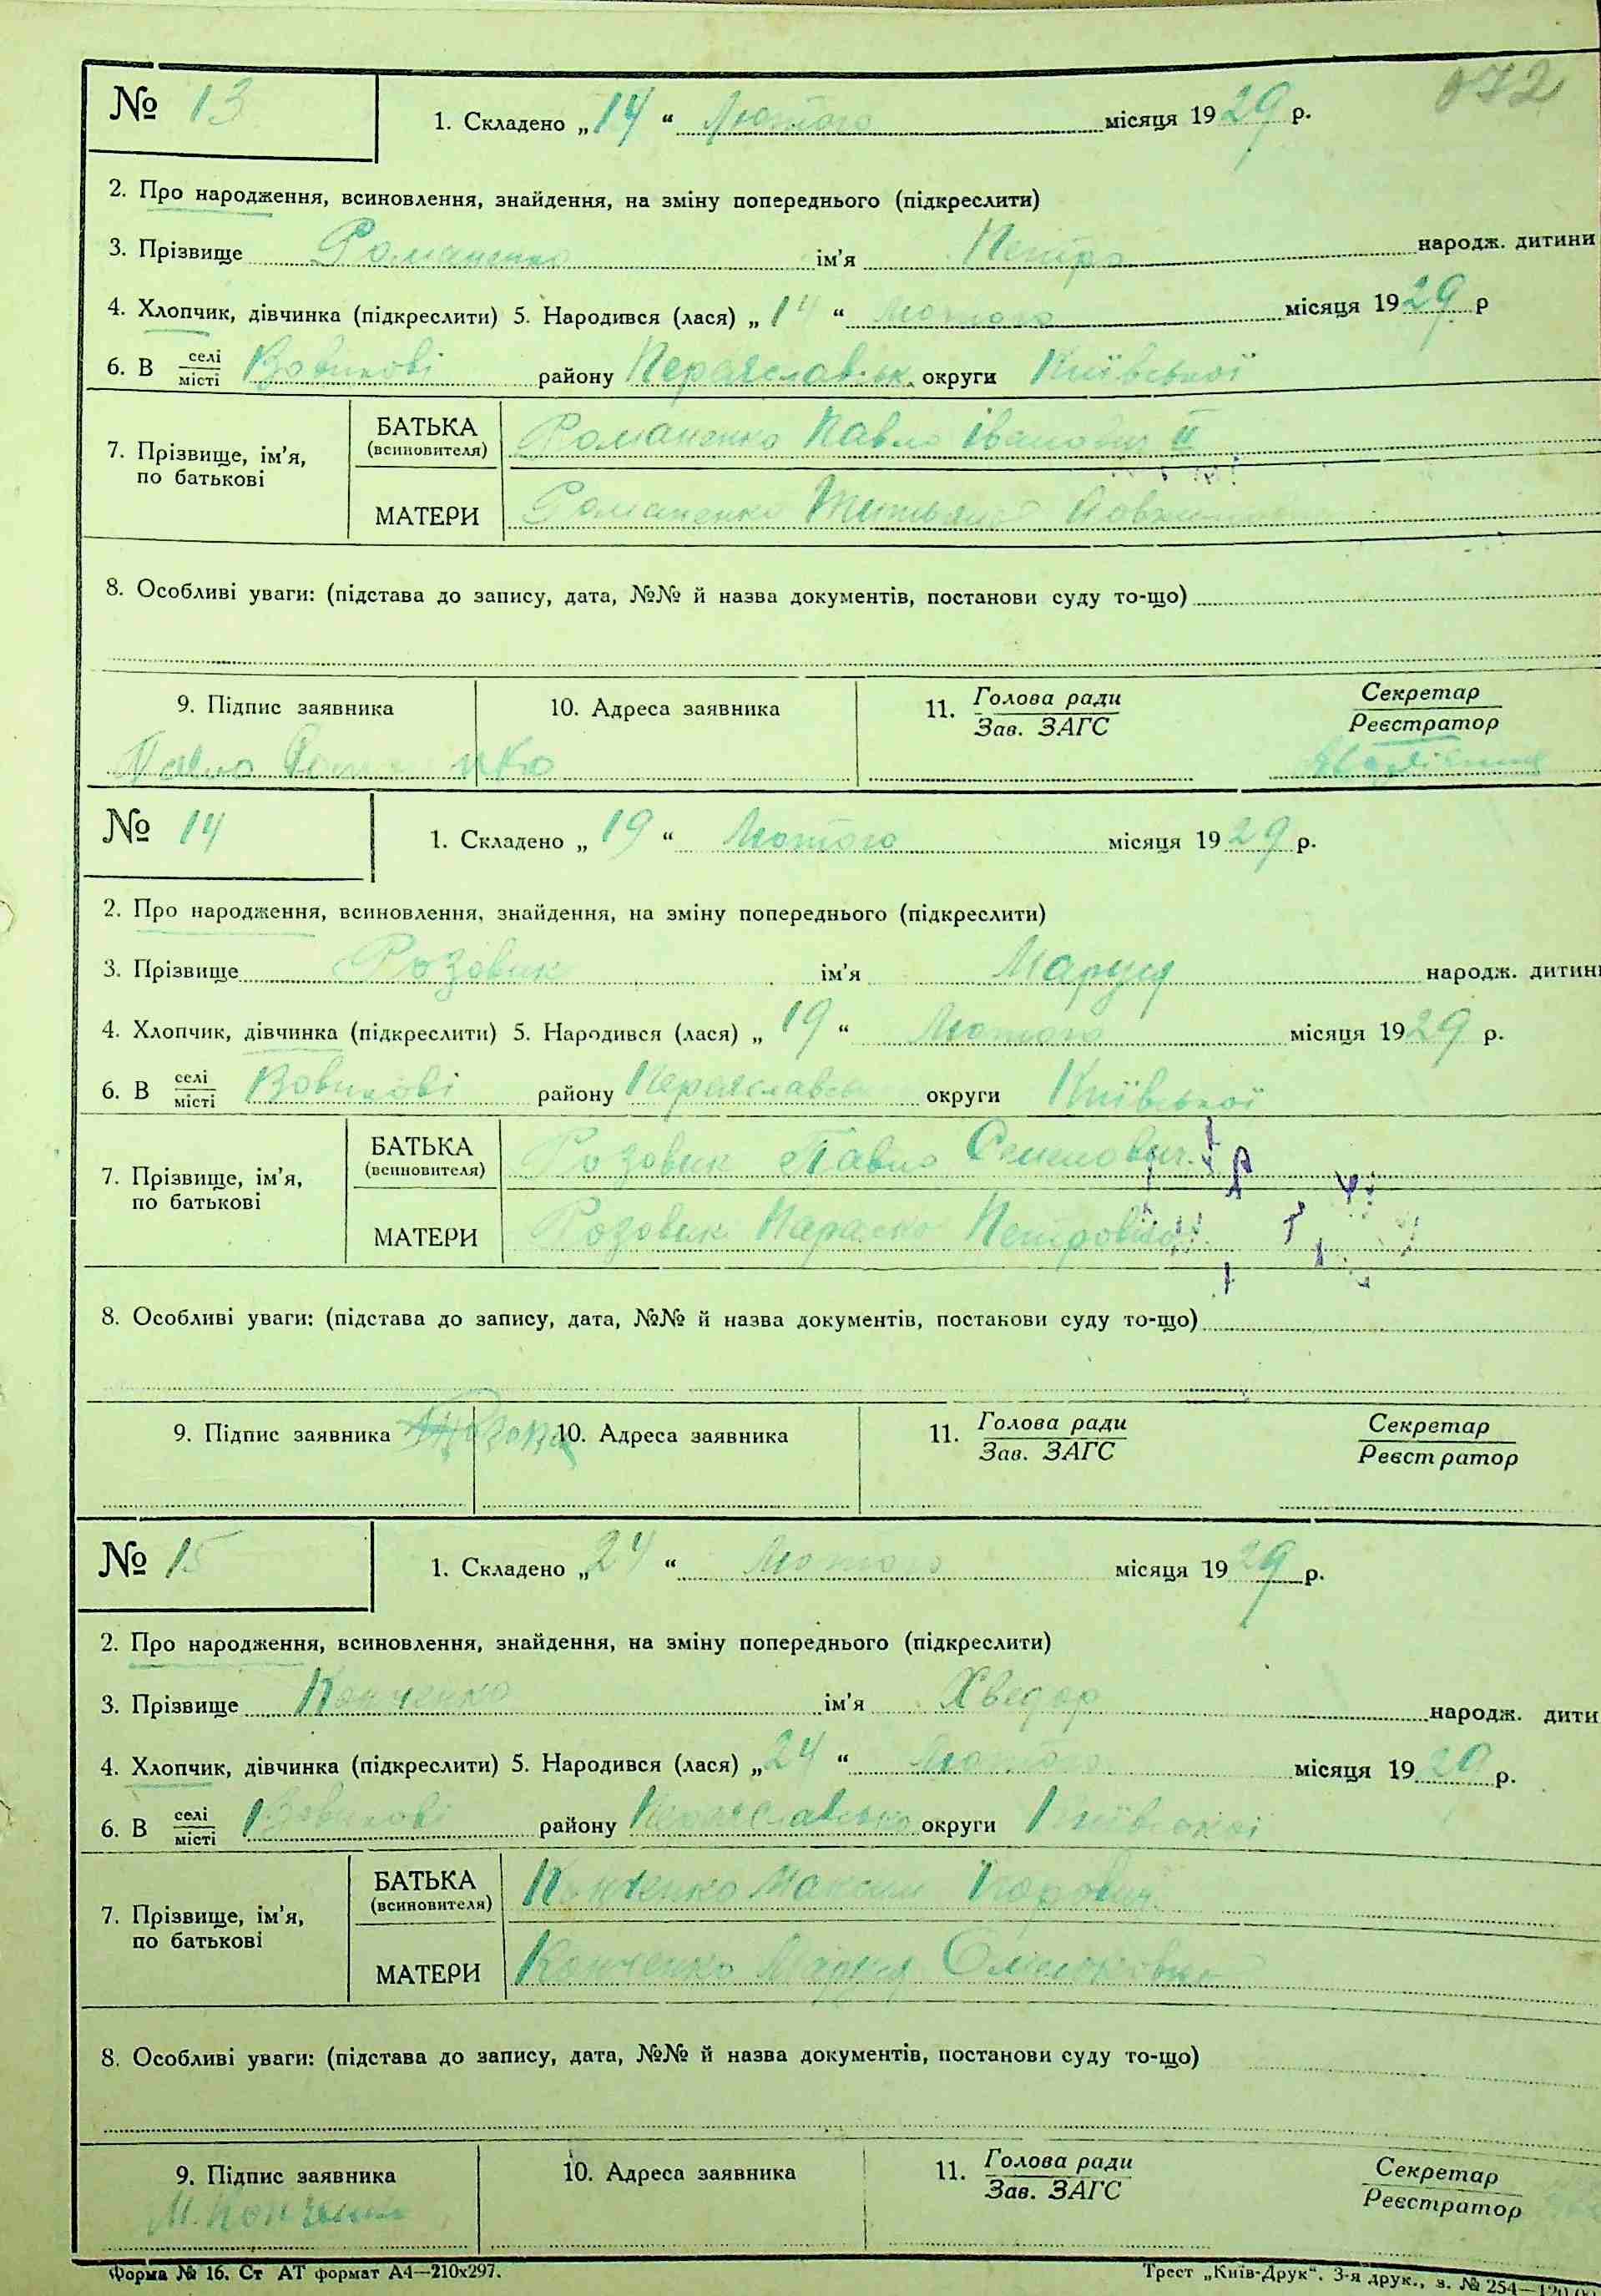 072
№ 13
1. Складено „14“ Лютого місяця 1929 р.
2. Про народження, всиновлення, знайдення, на зміну попереднього (підкреслити)
3. Прізвище Романенко ім'я Петро народж. дитини
4. Хлопчик, дівчинка (підкреслити) 5. Народився (лася) „14“ Лютого місяця 1929 р
6. В селі/місті Вовчкові району Переяславськ. округи Київської
7. Прізвище, ім'я, по батькові
БАТЬКА (всиновителя) Романенко Павло Іванович II
МАТЕРИ Романенко Тетьяна
8. Особливі уваги: (підстава до запису, дата, №№ й назва документів, постанови суду то-що)
9. Підпис заявника 10. Адреса заявника 11. Голова ради/Зав. ЗАГС Секретар/Реєстратор
Павло Романенко
№ 14
1. Складено „19“ Лютого місяця 1929 р.
2. Про народження, всиновлення, знайдення, на зміну попереднього (підкреслити)
3. Прізвище Розовик ім'я Маруся народж. дитини
4. Хлопчик, дівчинка (підкреслити) 5. Народився (лася) „19“ Лютого місяця 1929 р.
6. В селі/місті Вовчкові району Переяславськ округи Київської
7. Прізвище, ім'я, по батькові
БАТЬКА (всиновителя) Розовик Павло Семенович
МАТЕРИ Розовик Параско Петровна
8. Особливі уваги: (підстава до запису, дата, №№ й назва документів, постанови суду то-що)
9. Підпис заявника 10. Адреса заявника 11. Голова ради/Зав. ЗАГС Секретар/Реєстратор
№ 15
1. Складено „24“ Лютого місяця 1929 р.
2. Про народження, всиновлення, знайдення, на зміну попереднього (підкреслити)
3. Прізвище Конченко ім'я Хведор народж. дити
4. Хлопчик, дівчинка (підкреслити) 5. Народився (лася) „24“ Лютого місяця 1929 р.
6. В селі/місті Вовчкові району Переяславсько округи Київської
7. Прізвище, ім'я, по батькові
БАТЬКА (всиновителя) Конченко Максим
МАТЕРИ Конченко Маруся
8. Особливі уваги: (підстава до запису, дата, №№ й назва документів, постанови суду то-що)
9. Підпис заявника 10. Адреса заявника 11. Голова ради/Зав. ЗАГС Секретар/Реєстратор
Форма № 16. Ст АТ формат А4—210x297. Трест „Київ-Друк“. 3-я друк., з. № 254—